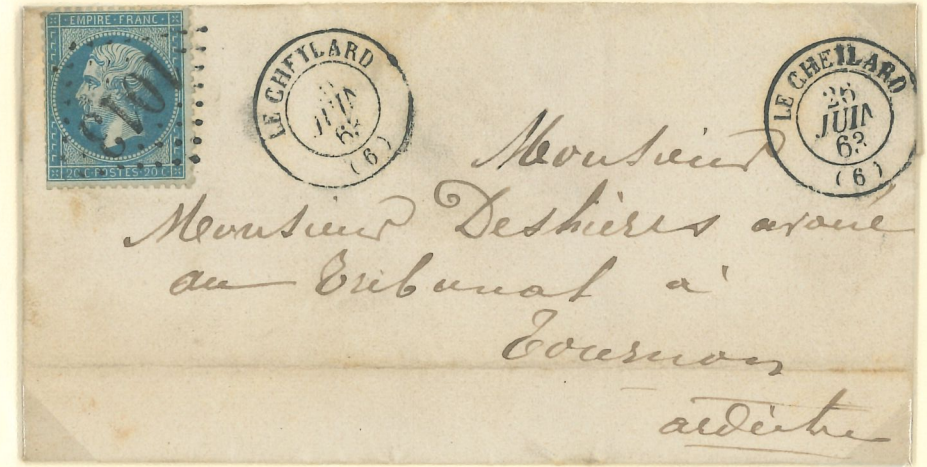 EMPIRE FRANC
1013
20 C POSTES 20 C
LE CHEYLARD
JUIN
63
(6)
LE CHEILARD
26
JUIN
63
(6)
Monsieur
Monsieur Deshières avoué
au Tribunal à
Tournon
ardèche